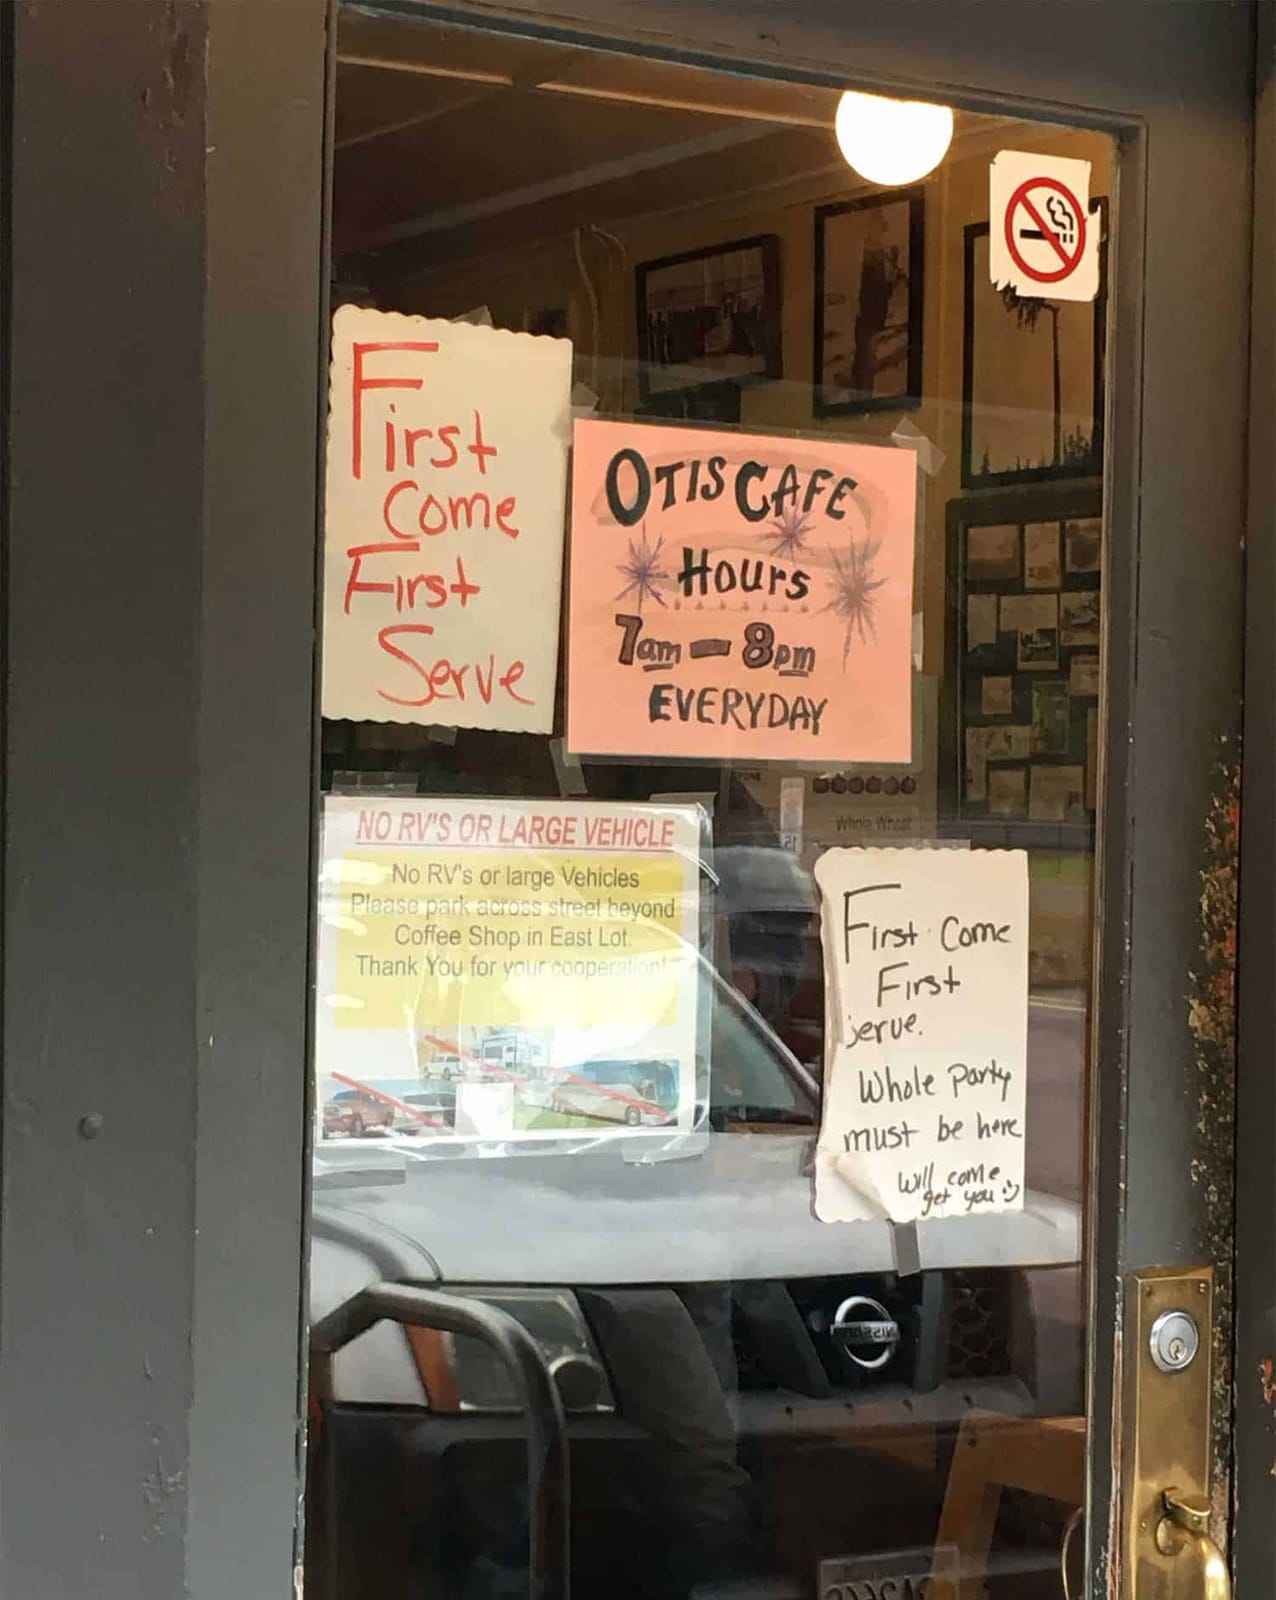 First
Come
First
Serve
OTIS CAFE
Hours
7am - 8pm
EVERYDAY
NO RV'S OR LARGE VEHICLE
No RV's or large Vehicles
Please park across street beyond
Coffee Shop in East Lot.
Thank You for your cooperation!
Whole Wheat
First Come
First
Serve.
Whole party
must be here
will come
get you :)
NISSAN